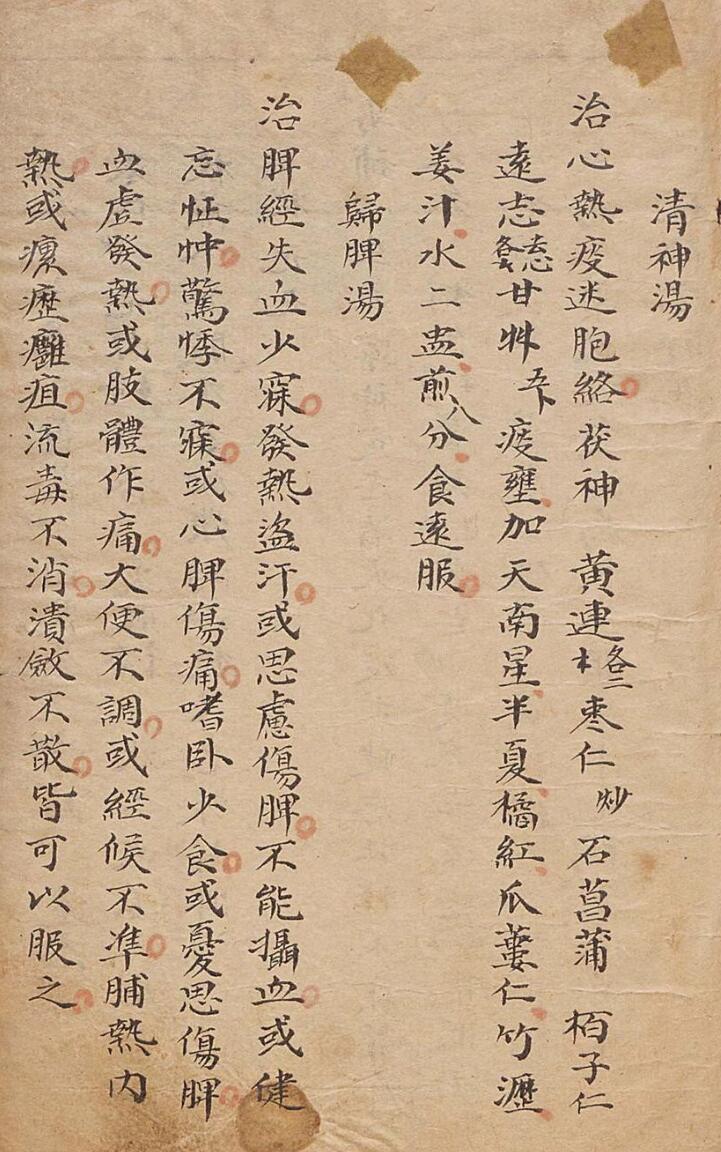 清神湯
治心熱疫迷胞絡茯神 黄連各二枣仁炒石菖蒲 栢子仁
遠志去心各甘艸五卜疫壅加天南星半夏橘紅瓜蔞仁竹瀝
姜汁水二盅煎八分食遠服
歸脾湯
治脾經失血少寐發熱盜汗或思慮傷脾不能攝血或健
忘怔忡驚悸不寐或心脾傷痛嗜卧少食或憂思傷脾
血虛發熱或肢體作痛大便不調或經候不準脯熱内
熱或瘰癧癰疽流毒不消潰斂不散皆可以服之